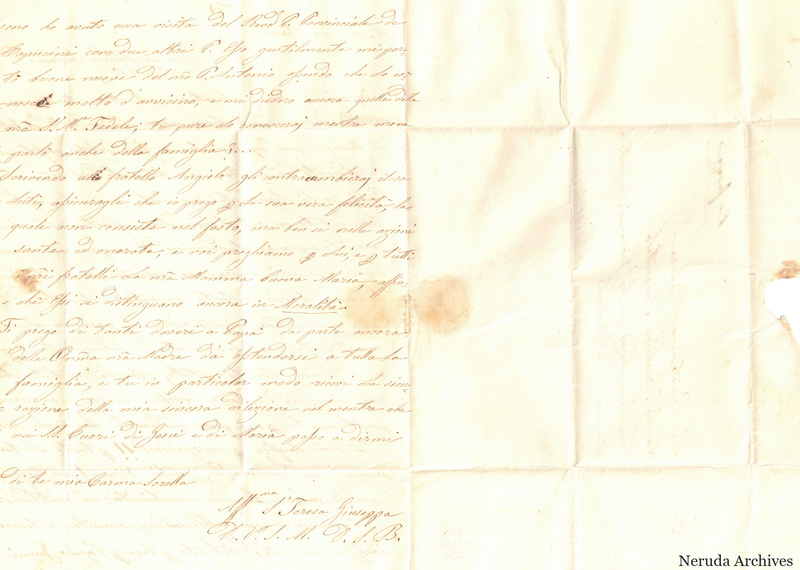 sono ho avuto una visita del Revd P. Provinciale de
Capucini con due altri P. Esso gentilmente mi por-
tò buone nuove del nro P. Antonio essendo che lo co-
nosce molto d'avvicino, e mi diedero ancora quelle della
nra S.r M. Fedele; tu pure la conoscerai mentre mi
parlò anche della famiglia?...
Scrivendo al fratello Angiolo gli contracambierai il sa-
luti, assicuragli che io prego p la sua vera felicità, la
quale non consiste nel fasto, ma ben sì nelle azioni
sante ed onorate, e noi preghiamo p lui, e p tutti
i nri fratelli la nra Mamma buona Maria, affin-
chè essi si distinguano ancora in Moralità.
Ti prego di tanti doveri a Papà da parte ancora
della nra Madre da estendersi a tutta la
famiglia, e tu in particolar modo ricevi la sicu-
razione della mia sincera dilezione nel mentre che
nei SS. Cuori di Gesù e di Maria passo a dirmi
Di te mia Carma Sorella
Affma Sr Teresa Giuseppa
D. V. S. M. D. S. B.
Neruda Archives